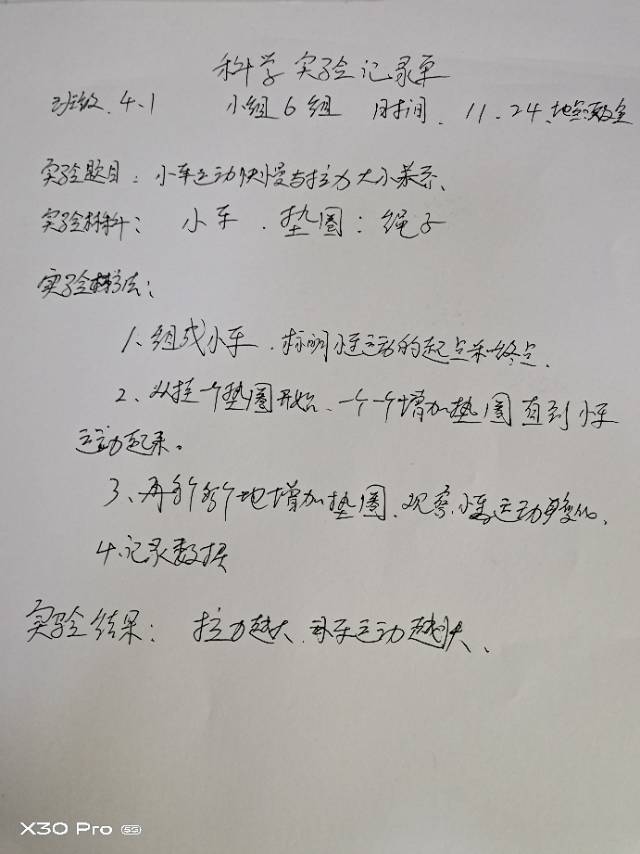 科学实验记录单
班级.4.1 小组6组 时间.11.24.地点:教室
实验题目:小车运动快慢与拉力大小关系、
实验材料: 小车.垫圈:绳子
实验方法:
1、组成小车.标明小车运动的起点和终点.
2、从挂一个垫圈开始、一个一个增加垫圈直到小车
运动起来。
3、再多个多个地增加垫圈.观察.小车运动变化.
4.记录数据
实验结果: 拉力越大.小车运动越快、
X30 Pro 5G